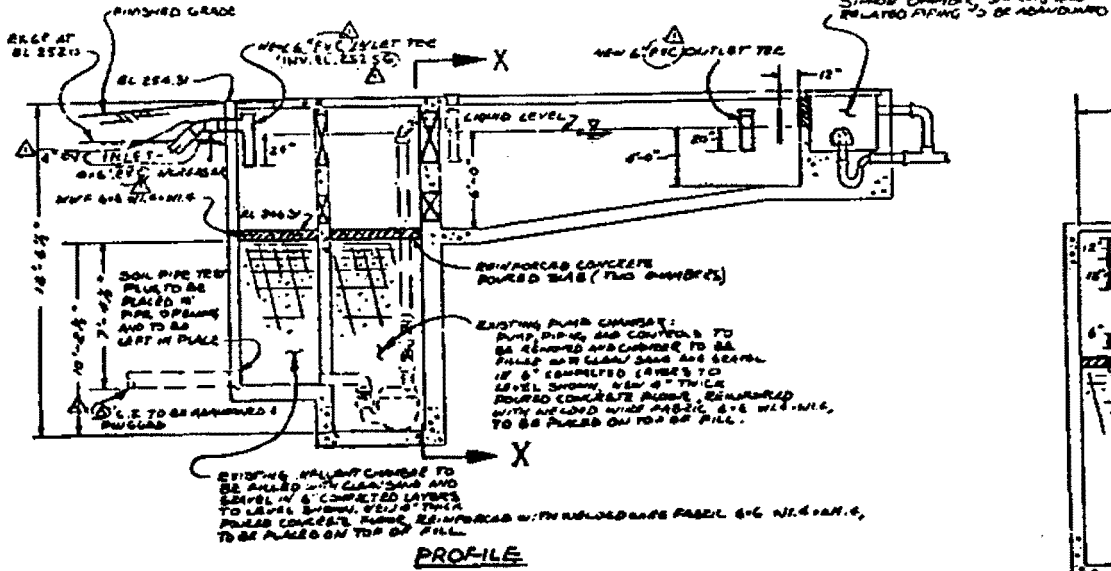 FINISHED GRADE
SIPHON CHAMBER,
RELATED PIPING TO BE ABANDONED
EXIST AT
EL 252.
NEW 6" PVC INLET TEE
INV. EL. 252.56
X
NEW 6" PVC OUTLET TEE
12"
EL 254.31
LIQUID LEVEL
24"
20"
6'-0"
INLET
PVC INCREASER
WWF 6×6 W1.4×W1.4
EL 246.31
REINFORCED CONCRETE
POURED SLAB (TWO CHAMBERS)
SOIL PIPE TEST
PLUG TO BE
PLACED IN
PIPE OPENING
AND TO BE
LEFT IN PLACE
12"
6"
EXISTING PUMP CHAMBER:
PUMP, PIPING AND CONTROLS TO
BE REMOVED AND CHAMBER TO BE
FILLED WITH CLEAN SAND AND GRAVEL
IN 6" COMPACTED LAYERS TO
LEVEL SHOWN. NEW 4" THICK
POURED CONCRETE FLOOR, REINFORCED
WITH WELDED WIRE FABRIC 6×6 W1.4×W1.4,
TO BE PLACED ON TOP OF FILL.
C.I. TO BE ABANDONED &
PLUGGED
X
EXISTING CHAMBER TO
BE FILLED WITH CLEAN SAND AND
GRAVEL IN 6" COMPACTED LAYERS
TO LEVEL SHOWN. NEW 4" THICK
POURED CONCRETE FLOOR, REINFORCED WITH WELDED WIRE FABRIC 6×6 W1.4×W1.4,
TO BE PLACED ON TOP OF FILL
PROFILE